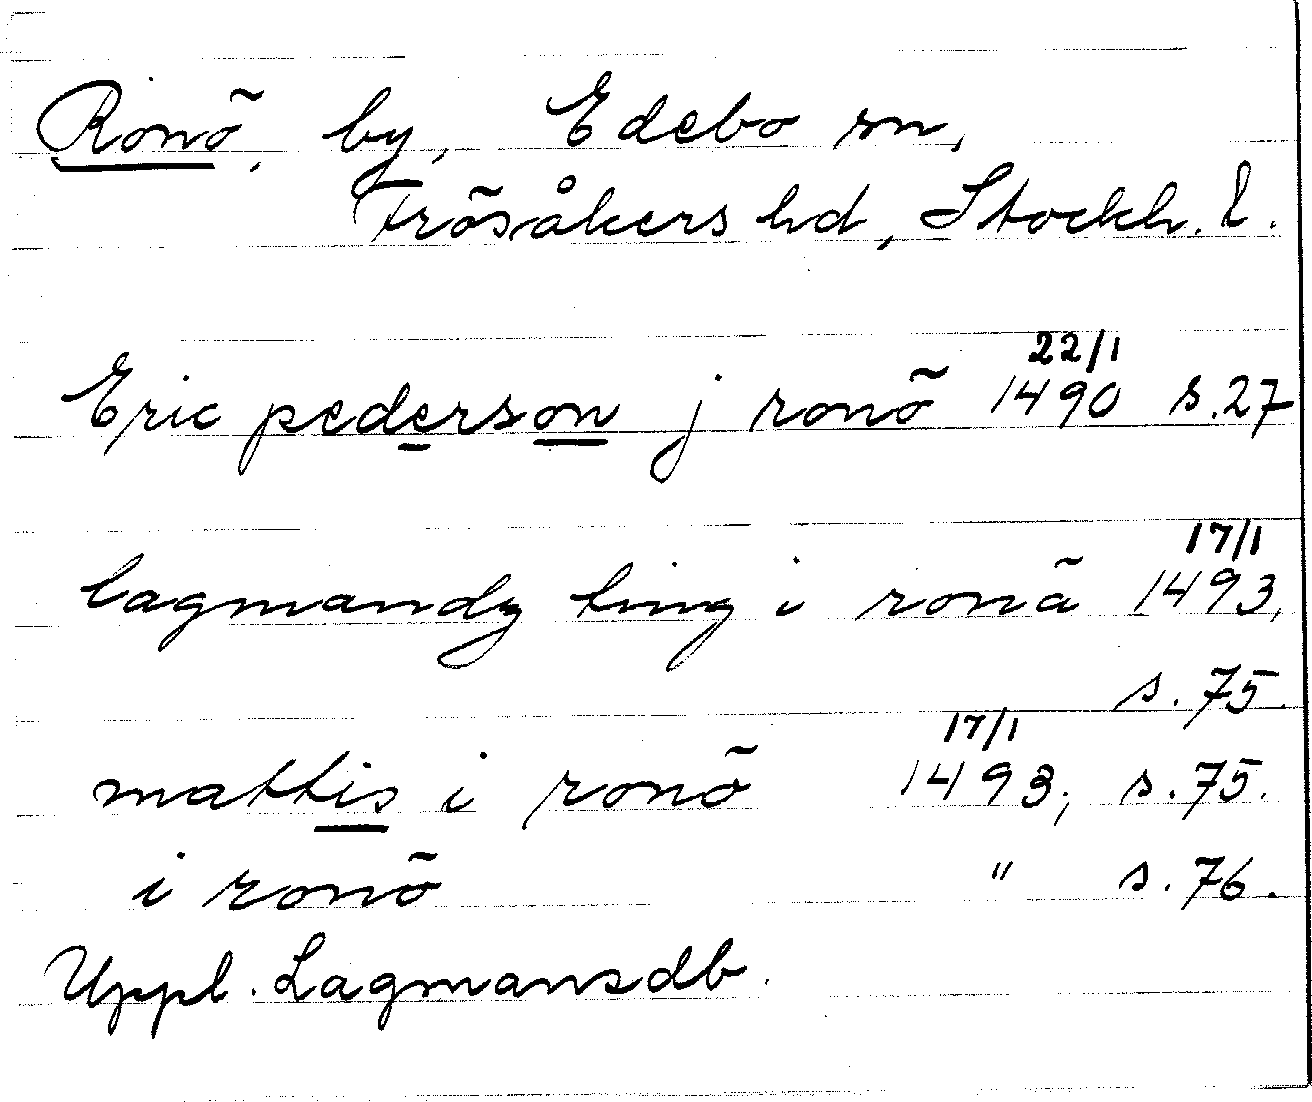 Ronö, by, Edebo sn,
Frösåkers hd, Stockh. l.
22/1
Eric pederson j ronö 1490 s.27
17/1
lagmandz ting i ronä 1493,
s.75.
17/1
mattis i ronö 1493, s.75.
i ronö " s.76.
Uppl. Lagmansdb.